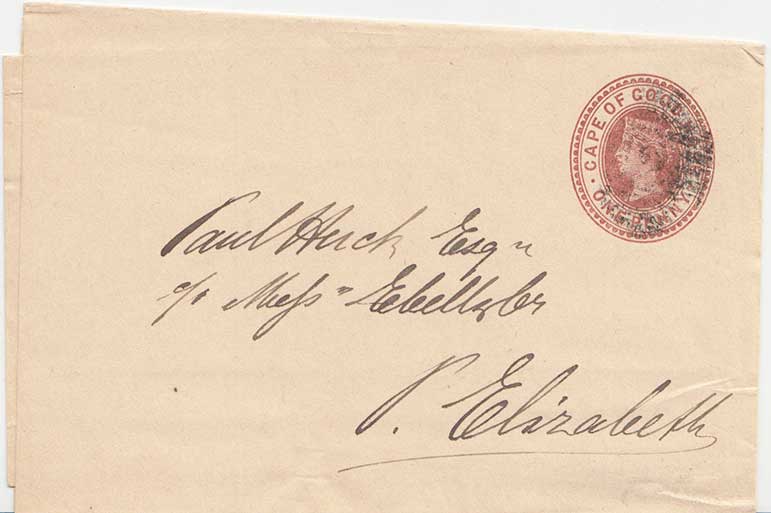 CAPE OF GOOD
ONE PENNY
Paul Huck Esqr
c/o Mess"
P. Elizabeth